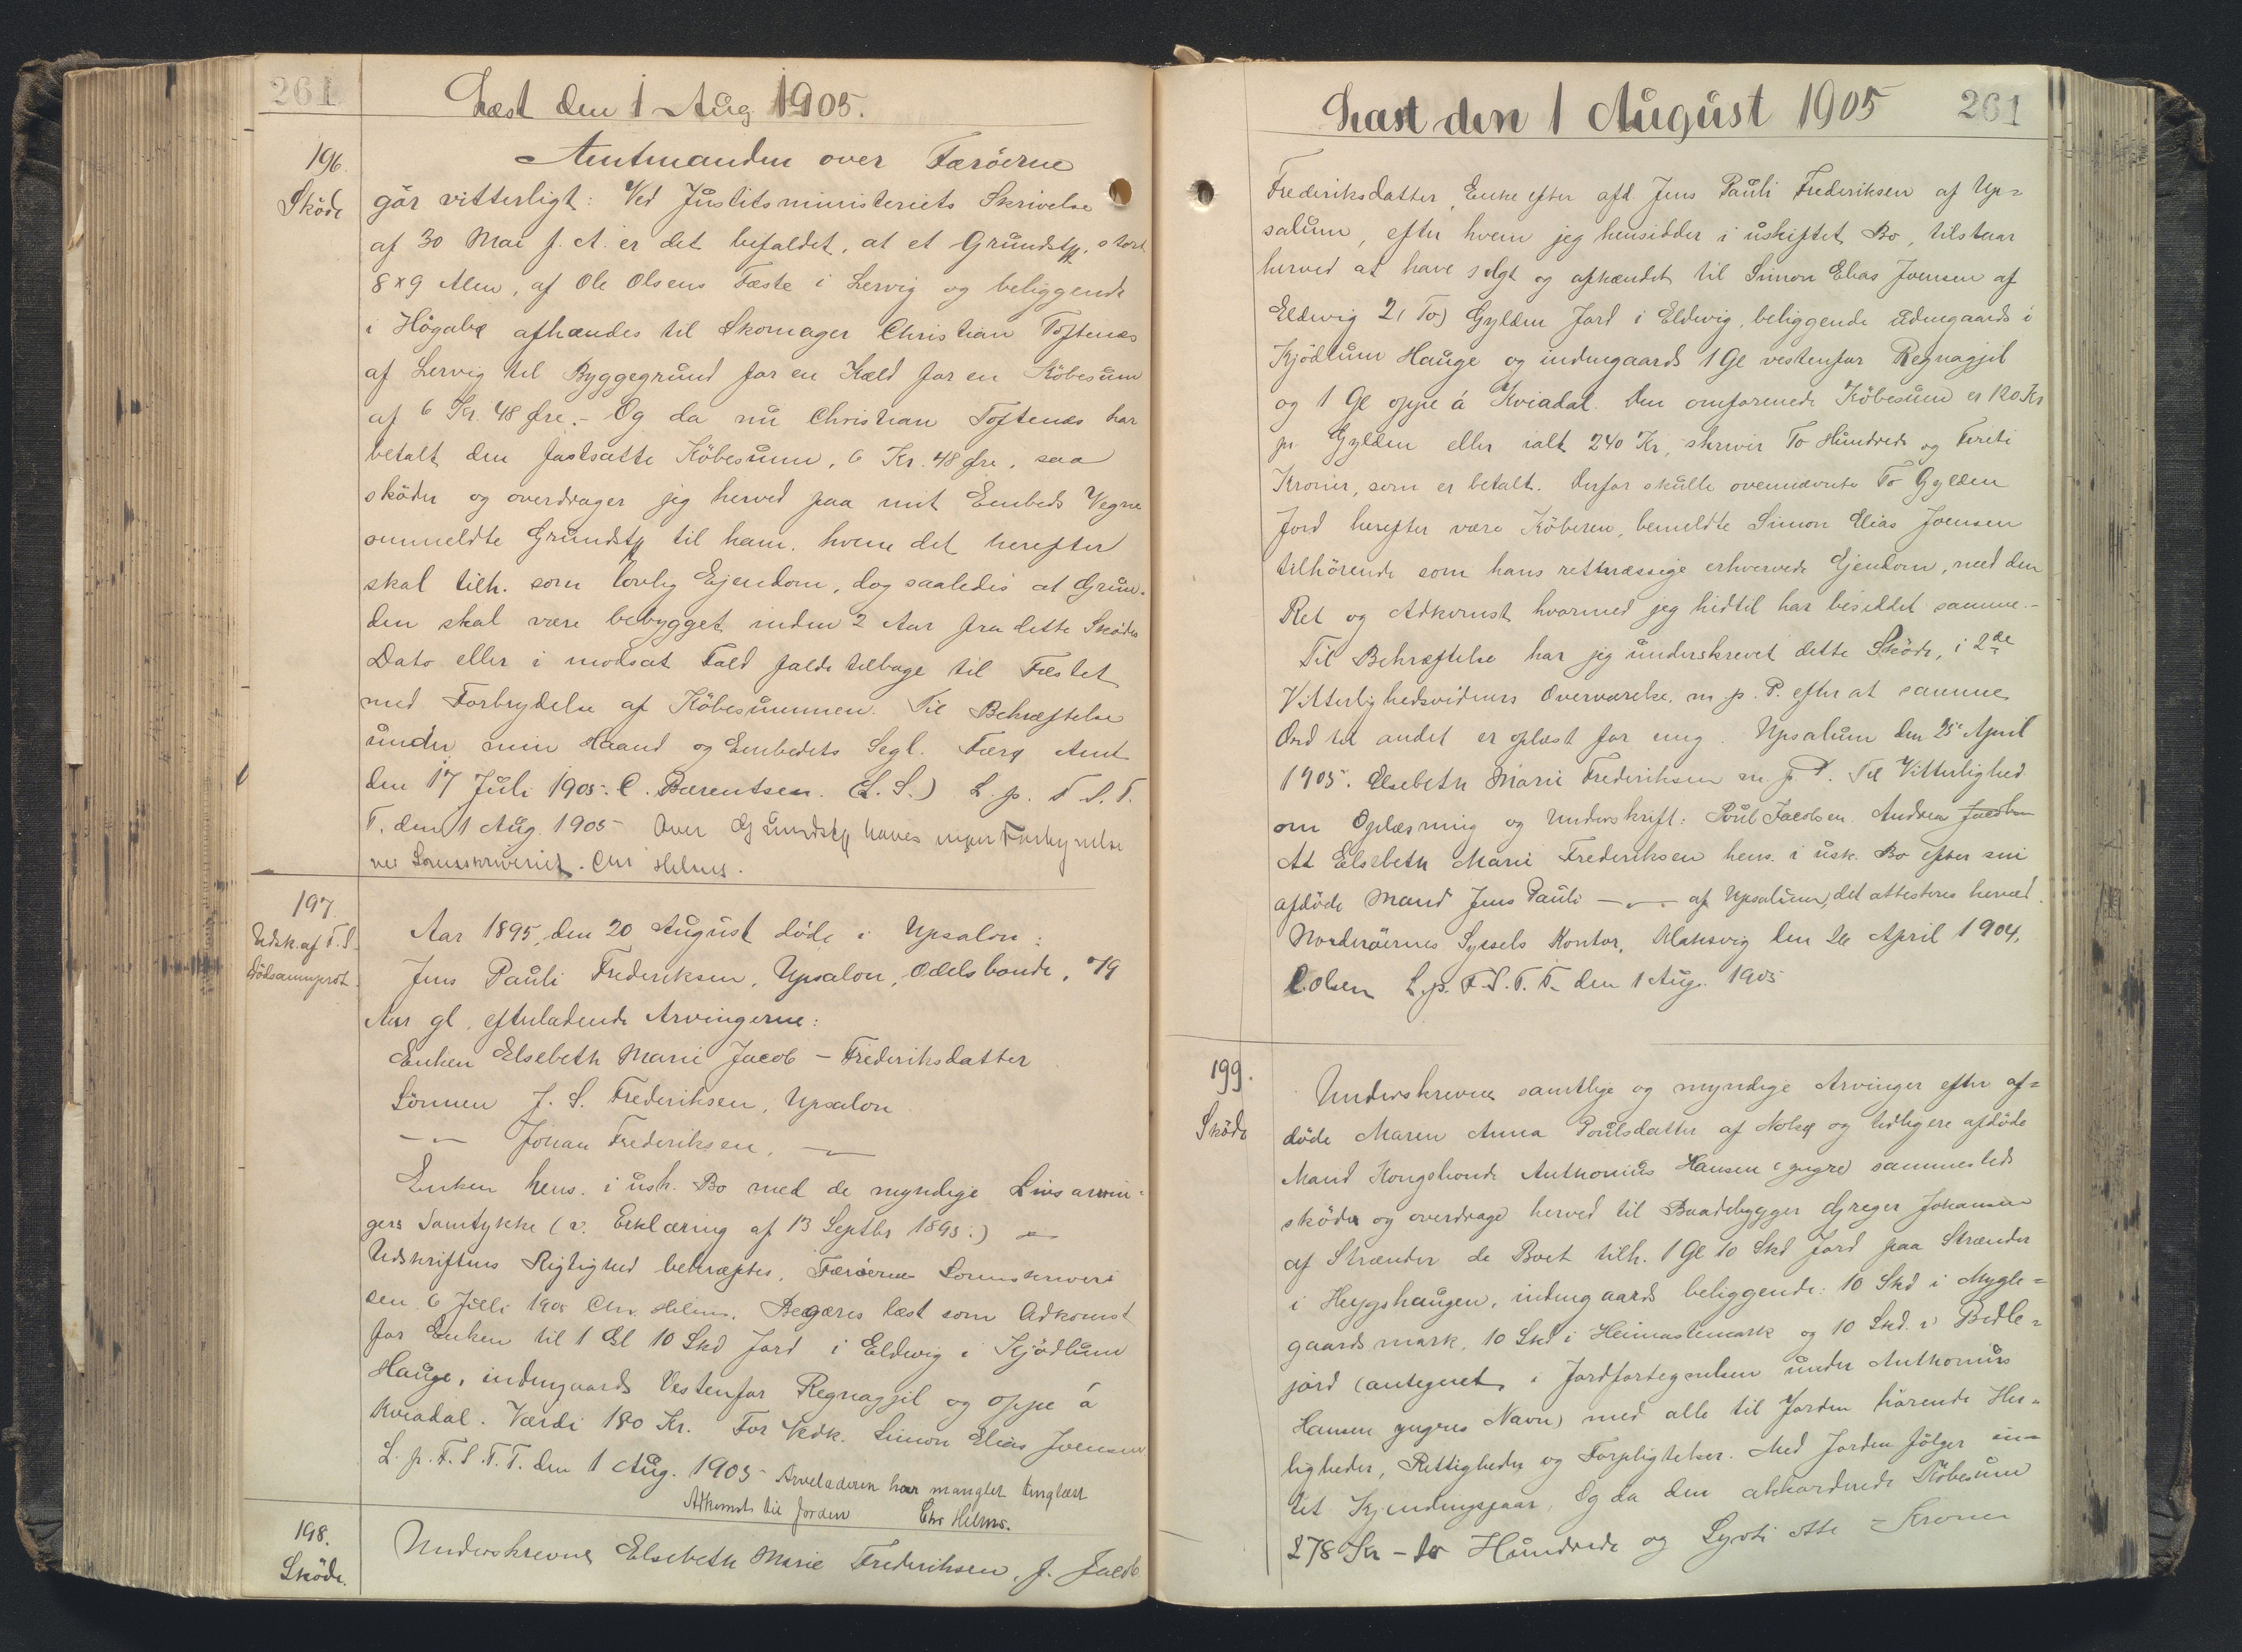 261
Læst den 1 Aug 1905.
196.
Sköde
Amtmanden over Færöerne
gör vitterligt: Ved Justitsministeriets Skrivelse
af 30 Mai f. A. er det bifaldet, at et Grundst., stort
8 x 9 Alen, af Ole Olsens Fæste i Lervig og beliggende
i Högabö afhændes til Skomager Christian Toftenæs
af Lervig til Byggegrund for en Kæld for en Köbesum
af 6 Kr. 48 Øre. - Og da nu Christian Toftenæs har
betalt den fastsatte Köbesum, 6 Kr. 48 Øre, saa
sköder og overdrager jeg herved paa mit Embeds Vegne
ommeldte Grundst. til ham, hvem det herefter
skal tilh. som lovlig Ejendom, dog saaledes at Grun-
den skal være bebygget inden 2 Aar fra dette Sködes
Dato eller i modsat Fald falde tilbage til Fæstet
med Forbrydelse af Köbesummen. Til Bekræftelse
under min Haand og Embedets Segl. Færö Amt
den 17 Juli 1905. C. Bærentsen. (L. S.) L. p. F. S. T.
T. den 1 Aug. 1905 Over Grundst. haves ingen
ved Sorenskriveriet. Chr Helms.
197.
Udsk. af F. S.
Dödsanmprot.
Aar 1895, den 20 August döde i Upsalon:
Jens Pauli Frederiksen, Upsalon, Odelsbonde, 79
Aar gl, efterladende Arvingerne:
Enken Elsebeth Marie Jacob - Frederiksdatter
Sönnen J. S. Frederiksen, Upsalon
-〃- Johan Frederiksen, -〃-
Enken hens. i usk. Bo med de myndige Livsarvin-
gers Samtykke (v. Erklæring af 13 Septbr 1895.)
Udskriftens Rigtighed bekræftes, Færöerne Sorenskriveri
den 6 Juli 1905 Chr. Helms. Begæres læst som Adkomst
for Enken til 1 Gl 10 Skd Jord i Eldevig i Kjödlum
Hauge, indengaards Vestenfor Regnagjil og oppe á
Kviadal. Værdi 180 Kr. For Vedk. Simon Elias Joensen
L. p. F. S. T. T. den 1 Aug. 1905 Arveladeren har manglet tinglæst
Adkomst til Jorden Chr Helms.
198.
Sköde.
Underskrevne Elsebeth Marie Frederiksen, f. Jacob
Læst den 1 August 1905
261
Frederiksdatter, Enke efter afd. Jens Pauli Frederiksen af Up=
salum, efter hvem jeg hensidder i uskiftet Bo, tilstaar
herved at have solgt og afhændet til Simon Elias Joensen af
Eldevig 2 (To) Gylden Jord i Eldevig, beliggende udengaards i
Kjödlum Hauge og indengaards 1 Gl vestenfor Regnagjil
og 1 Gl oppe á Kviadal. Den omforenede Köbesum er 120 Kr
pr Gylden eller ialt 240 Kr, skriver To Hundrede og Fireti
Kroner, som er betalt. Derfor skulle ovennævnte To Gylden
Jord herefter være Köberen, bemeldte Simon Elias Joensen
tilhörende som hans retmæssige erhvervede Ejendom, med den
Ret og Adkomst hvormed jeg hidtil har besiddet samme.-
Til Bekræftelse har jeg underskrevet dette Sköde, i 2de
Vitterlighedsvidners Overværelse, m. p. P. efter at samme
Ord til andet er oplæst for mig. Upsalum den 25 April
1905. Elsebeth Marie Frederiksen m. p. P. Til Vitterlighed
om Oplæsning og Underskrift: Poul Jacobsen. Andrea Jacobsen
At Elsebeth Marie Frederiksen hens. i usk. Bo efter sin
afdöde Mand Jens Pauli -〃- af Upsalum, det attesteres herved.
Norderöernes Syssels Kontor, Klaksvig den 26 April 1904.
C. Olsen L. p. F. S. T. T. den 1 Aug. 1905
199.
Sköde
Underskrevne samtlige og myndige Arvinger efter af=
döde Maren Anna Poulsdatter af Nolsö og tidligere afdöde
Mand Kongsbonde Anthonius Hansen (yngre) sammesteds
sköder og overdrage herved til Baadebygger Greger Johansen
af Strænder de Boet tilh. 1 Gl 10 Skd Jord paa Strænder
i Heygshaugen, indengaards beliggende: 10 Skd i Mygle=
gaards mark, 10 Skd i Heimastemark og 10 Skd. i Bedle=
jord (antegnet i Jordfortegnelsen under Anthonius
Hansen yngres Navn) med alle til Jorden hörende Her=
ligheder, Rettigheder og Forpligtelser. Med Jorden fölger in=
tet Kjendingsfaar. Og da den akkorderede Köbesum
278 Kr - To Hundrede og Syvti Otte - Kroner